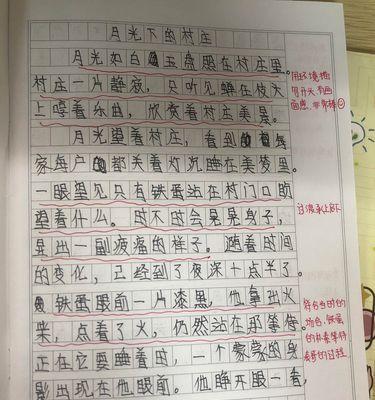 月光下的村庄
月光如白玉盘照在村庄里。
村庄一片静寂，只听见蝉在枝头
上唱着乐曲，欣赏着村庄美景。
月光望着村庄，看到每
家每户都关着灯沉睡在美梦里。
一眼望见只有铁蛋站在村门口盼
望着什么。时不时会晃晃身子，
显出一副疲惫的样子。随着时间
的变化，已经到了夜深十点半了。
铁蛋眼前一片漆黑，他拿出火
来，点着了火，仍然站在那等候。
正在它要睡着时，一个蒙蒙的身
影出现在他眼前。他睁开眼一看，
用环境描
写开头，有画
面感，非常棒
过渡承上启下
的过程